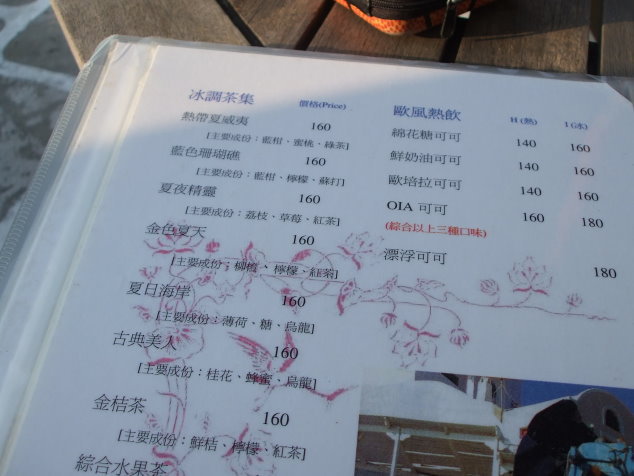 冰調茶集 價格(Price)
熱帶夏威夷 160
[主要成份：藍柑、蜜桃、綠茶]
藍色珊瑚礁 160
[主要成份：藍柑、檸檬、蘇打]
夏夜精靈 160
[主要成份：荔枝、草莓、紅茶]
金色夏天 160
[主要成份：柳橙、檸檬、紅茶]
夏日海岸 160
[主要成份：薄荷、糖、烏龍]
古典美人 160
[主要成份：桂花、蜂蜜、烏龍]
金桔茶 160
[主要成份：鮮桔、檸檬、紅茶]
綜合水果茶
歐風熱飲 H (熱) I (冰)
綿花糖可可 140 160
鮮奶油可可 140 160
歐培拉可可 140 160
OIA 可可 160 180
(綜合以上三種口味)
漂浮可可 180